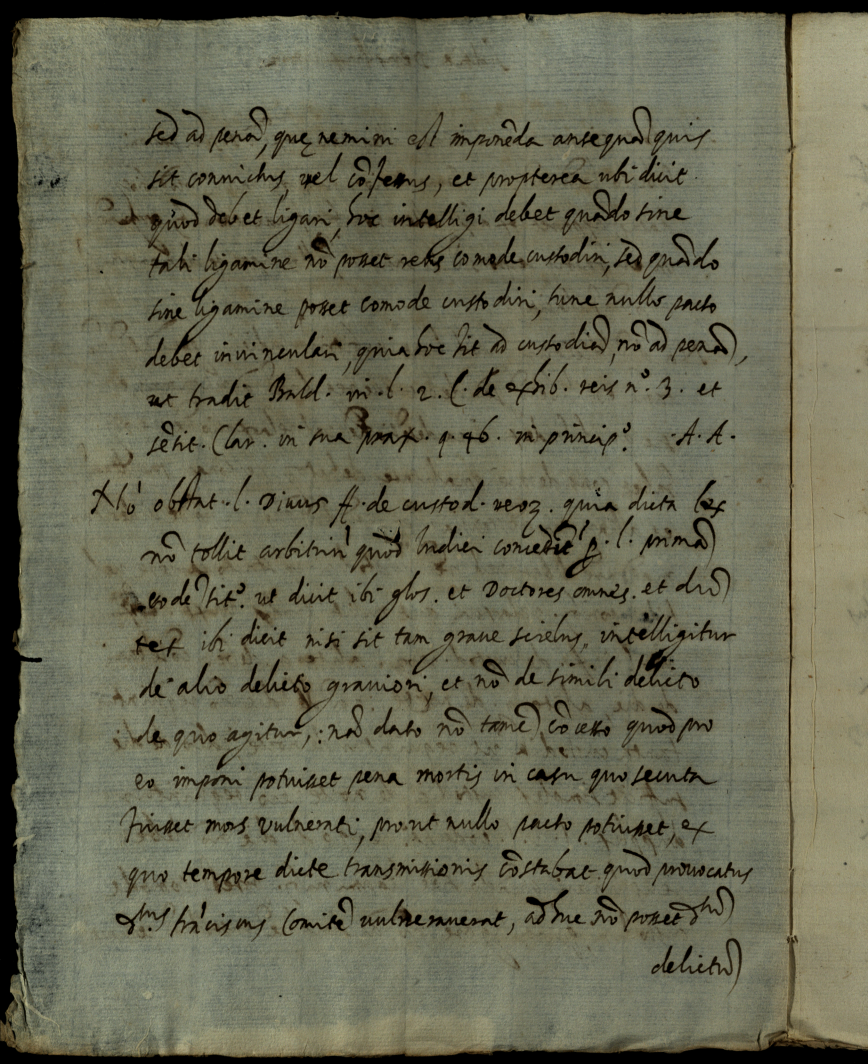 sed ad penã, quę nemini est imponẽda antequã quis
sit convictus vel cõfessus, et propterea ubi dicit
quòd debet ligari, hoc intelligi debet quãdo sine
tali ligamine nõ posset reus comode custodiri, sed quãdo
sine ligamine posset comode custodiri, tunc nullo pacto
debet invinculari, quia hoc fit ad custodiã, nõ ad penã,
ut tradit Bald. in l. 2. C. de exhib. reis n.º 3. et
sẽtit. Clar. in sua prax. q. 46. in princip.º A. A.
Nõ obstat l. Divus ff. de custod. reoꝝ. quia dicta lex
nõ tollit arbitriũ quòd Iudici concedit ꝑ l. primã
eodẽ tit.º ut dicit ibi glos. et Doctores omnes. et dũ
tex ibi dicit nisi sit tam grave scelus, intelligitur
de alio delicto graviori, et nõ de simili delicto
de quo agitur, : nã dato nõ tamẽ cõcesso quòd pro
eo imponi potuisset pena mortis in casu quo secuta
fuisset mors vulnerati, prout nullo pacto potuisset, ex
quo tempore dicte transmissionis cõstabat quòd provocatus
d.tus frãciscus Comitẽ vulneraverat, adhuc nõ posset d.tũ
delictũ